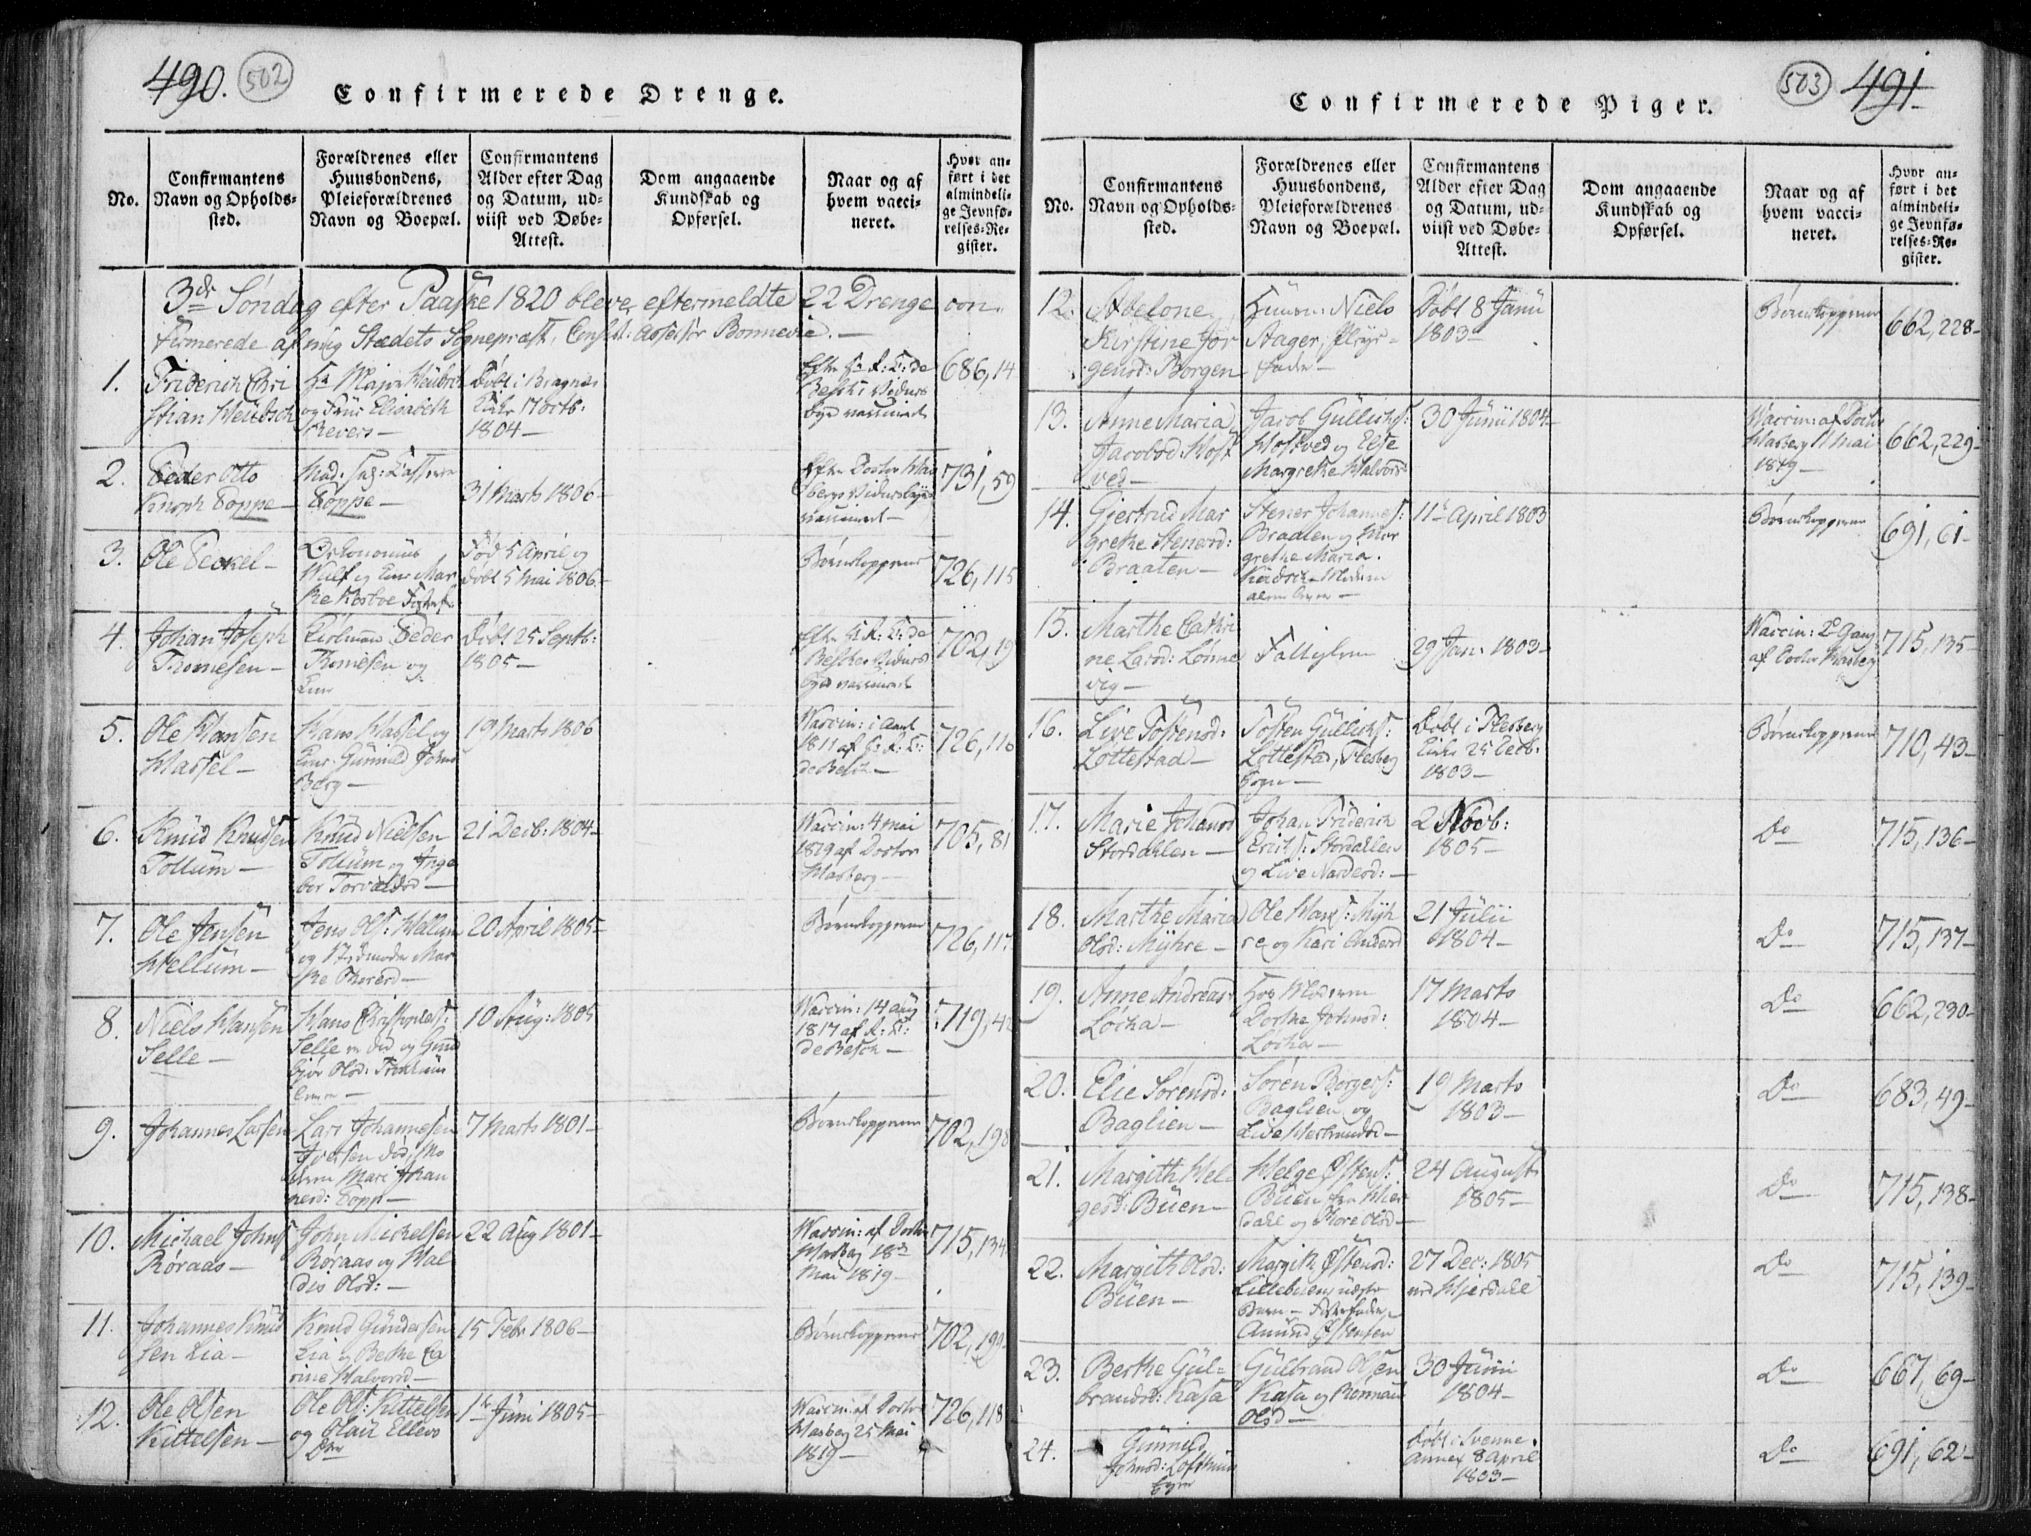 490.
502
Confirmerede Drenge.
No.
Confirmantens
Navn og Opholds-
sted.
Forældrenes eller
Huusbondens,
Pleieforældrenes
Navn og Boepæl.
Confirmantens
Alder efter Dag
og Datum, ud-
viist ved Døbe-
Attest.
Dom angaaende
Kundskab og
Opførsel.
Naar og af
hvem vacci-
neret.
Hvor an-
ført i det
almindeli-
ge Jevnfø-
relses-Re-
gister.
3die Søndag efter Paaske 1820 bleve eftermeldte 22 Drenge con-
firmerede af mig Stædets Sognepræst, Consist: Assessor Bonnevie. —
1.
Friderich Chri
stian Heidsch
Hr Major
og Frue Elisabeth
Sievers —
Døbt i Bragnes
Kirke 17 Octb:
1804 —
686,14
2.
Peder Otto
Knoph Poppe —
Mad: Sal:
Poppe —
31 Marts 1806 —
vaccineret —
731,59
3.
Ole Peckel —
Oekonomus
Wulf og
Fød 5 April og
døbt 5 Mai 1806 —
Børnekopperne
726,115
4.
Johan Joseph
Thomesen —
Peder
Thomesen og
Døbt 25 Septb:
1805 —
vaccineret
702,19
5.
Ole Hansen
Hassel —
Hans Hassel og
Gunnild Johns
Berg —
19 Marts 1806
Vaccin: i Aaret
1811 af H: R: P:
de Besche —
726,116
6.
Knud Knudsen
Tollum —
Knud Nielsen
Tollum og Inge
bor Torvaldsd —
21 Decb: 1804 —
Vaccin: 4 Mai
1819 af Doctor
Hasberg —
705,81
7.
Ole Jensen
Hellum —
Jens Ols: Hellum
og Stedmoder Mar
the
20 April 1805 —
Børnekopperne
726,117
8.
Niels Hansen
Selle —
Hans Christophers:
Selle er død og Gun
bjør Olsd:
10 Aug: 1805
Vaccin: 14 Aug
1817 af R: P:
de Besch —
719,42
9.
Johannes Larsen
Lars Johannesen
død, Mo
deren Mari Johan
nesd:
7 Marts 1801 —
Børnekopperne
702,198
10.
Michael Johns
Røraas —
John Michelsen
Røraas og Hal
dis Olsd: —
22 Aug 1801 —
Vaccin: af Doctor
Hasberg 18de
Mai 1819 —
715,134
11.
Johannes Knud
sen Lia —
Knud Gundersen
Lia og Berthe Ca
rine Halvorsd —
15 Febr 1806 —
Børnekopperne
702,199
12.
Ole Olsen
Kittelsen —
Ole Ols: Kittelsen
og Olaug Ellevs
Dtr
1te Juni 1805 —
Vaccin: af Doctor
Hasberg 25 Mai
1819 —
726,118
503
491
Confirmerede Piger.
No.
Confirmantens
Navn og Opholds-
sted.
Forældrenes eller
Huusbondens,
Pleieforældrenes
Navn og Boepæl.
Confirmantens
Alder efter Dag
og Datum, ud-
viist ved Døbe-
Attest.
Dom angaaende
Kundskab og
Opførsel.
Naar og af
hvem vacci-
neret.
Hvor an-
ført i det
almindeli-
ge Jevnfø-
relses-Re-
gister.
12.
Abelone
Kirstine Jør
gensd: Borgen
Niels
Stager, Pleye-
fader —
Døbt 8 Janu
1803 —
Børnekopperne
662,228 —
13.
Anne Maria
Jacobsd: Host
ved —
Jacob Gullichs:
Hostved og Else
Margrethe Halvors
30 Junii 1804 —
Vaccin: af Doctor
Hasberg 11 Mai
1819 —
662,229 —
14.
Gjertrud Mar
grethe Stenersd:
Braaten —
Stener Johannes:
Braaten og Mar
grethe Maria
Moderen
alene lever —
11te April 1803
Børnekopperne
691,61 —
15.
Marthe Cathri
ne Larsd: Lønne
vig —
Fattiglem
29 Jan: 1803 —
Vaccin: 2 Gang
af Doctor Hasberg
715,135 —
16.
Live Tostensd:
Lottestad —
Tosten Gullichs:
Lottestad, Flesberg
Sogn —
Døbt i Flesberg
Kirke 25 Decb:
1803 —
Børnekopperne
710,43 —
17.
Marie Johansd
Stordahlen —
Johan Friderich
Erichs: Stordahlen
og Live Nardesd: —
2 Novb:
1805 —
Do
715,136 —
18.
Marthe Maria
Olsd: Myhre —
Ole Hans: Myh
re og Kari Andersd
21 Julii
1804 —
Do
715,137 —
19.
Anne Andreasd
Løcka —
Hos Moderen
Dorthe Johnsd:
Løcka —
17 Marts
1804 —
Do
662,230 —
20.
Elie Sørensd:
Baglien —
Søren Borgers:
Baglien og
Live Herbrandsd —
19 Marts
1803 —
Do
683,49 —
21.
Margith Hel-
gesd: Buen —
Helge Østens:
Buen fra Hier
dahl og Thore Olsd —
24 August
1805 —
Do
715,138 —
22.
Margith Olsd:
Buen —
Margith Østensd:
Lillebuens uægte
Barn — Fosterfader
Amund Østensen
27 Dec: 1805
ved Hjerdahl
Do
715,139 —
23.
Berthe Gul-
brandsd: Kasa
Gulbrand Olsen
Kasa og Rønnau
Olsd —
30 Junii
1804 —
Do
667,69 —
24.
Gunnild
Johnsd:
Døbt i Svenne
Annex 8 April
1803 —
Do
691,62 —